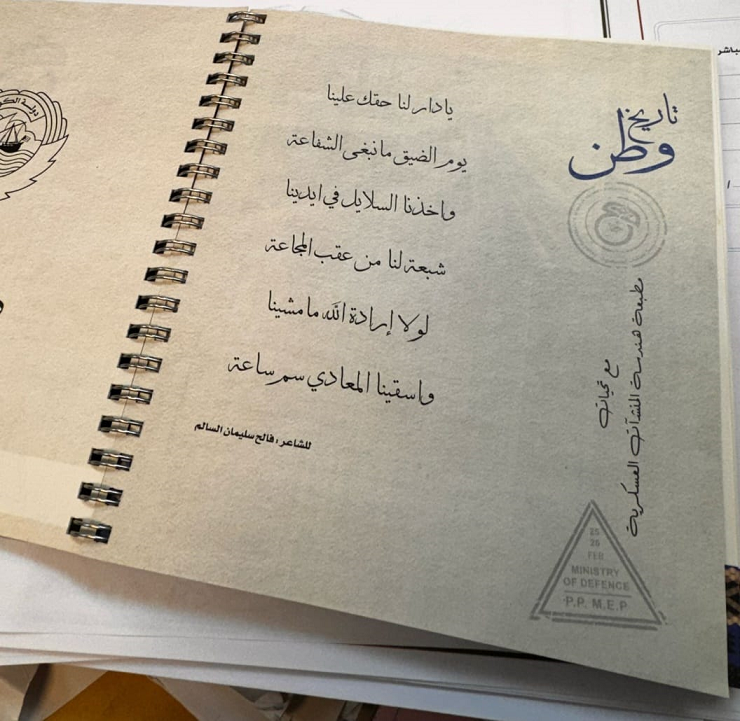 تاريخ
وطن
يادار لنا حقك علينا
يوم الضيق مانبغى الشفاعة
واخذنا السلايل في ايدينا
شبعة لنا من عقب المجاعة
لولا إرادة الله مامشينا
واسقينا المعادي سم ساعة
للشاعر : فالح سليمان السالم
مع تحيات
مطبعة هندسة المنشآت العسكرية
25
26
FEB
MINISTRY
OF DEFENCE
P.P. M.E.P